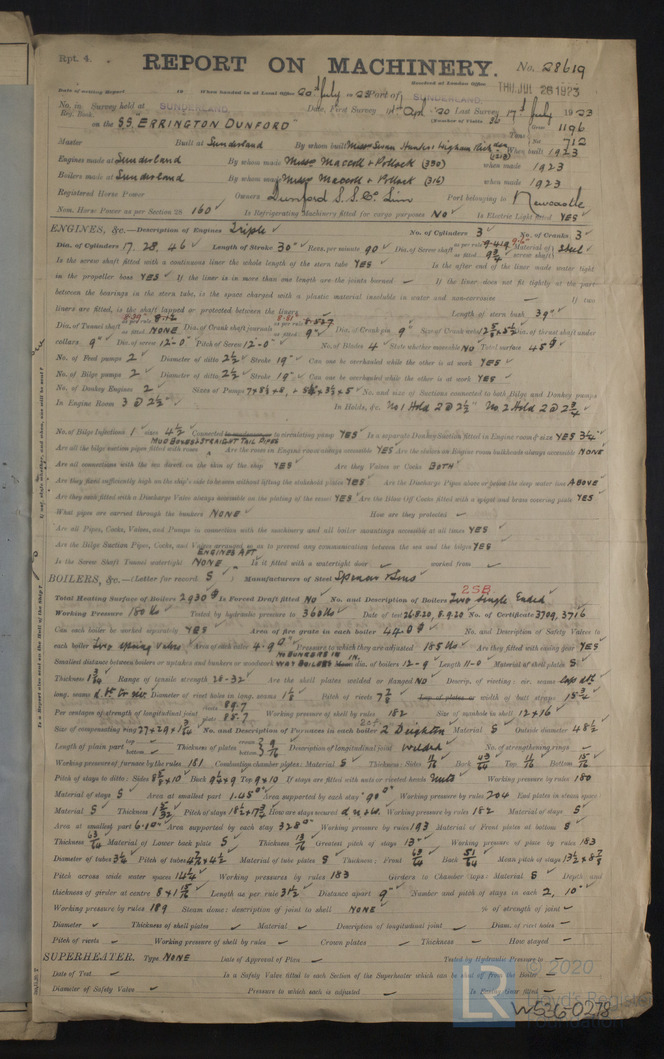 Rpt. 4.
REPORT ON MACHINERY.
No. 28619
THU. JUL 26 1923
Date of writing Report 19 When handed in at Local Office 20th July 1923 Port of SUNDERLAND
No. in Survey held at SUNDERLAND Date, First Survey Last Survey 17th July 1923
Reg. Book. (Number of Visits 56
on the SS "ERRINGTON DUNFORD" Tons Gross 1196 Net 712
Master Built at Sunderland By whom built Messrs Swan Hunter Wigham Richardson When built 1923
Engines made at Sunderland By whom made Messrs Maccoll & Pollock (330) when made 1923
Boilers made at Sunderland By whom made Messrs Maccoll & Pollock (316) when made 1923
Registered Horse Power Owners Dunford S.S. Co. Lim Port belonging to Newcastle
Nom. Horse Power as per Section 28 160 Is Refrigerating Machinery fitted for cargo purposes NO Is Electric Light fitted YES
ENGINES, &c.—Description of Engines Triple No. of Cylinders 3 No. of Cranks 3
Dia. of Cylinders 17. 28. 46 Length of Stroke 30" Revs. per minute 90 Dia. of Screw shaft as per rule 9.419 as fitted 9 3/4 Material of screw shaft Steel
Is the screw shaft fitted with a continuous liner the whole length of the stern tube YES Is the after end of the liner made water tight
in the propeller boss YES If the liner is in more than one length are the joints burned — If the liner does not fit tightly at the part
between the bearings in the stern tube, is the space charged with a plastic material insoluble in water and non-corrosive — If two
liners are fitted, is the shaft lapped or protected between the liners — Length of stern bush 39"
Dia. of Tunnel shaft as fitted NONE Dia. of Crank shaft journals as per rule 8.527 as fitted 9" Dia. of Crank pin 9" Size of Crank webs Dia. of thrust shaft under
collars 9" Dia. of screw 12-0" Pitch of Screw 12-0" No. of Blades 4 State whether moveable NO Total surface 45
No. of Feed pumps 2 Diameter of ditto 2 1/2 Stroke 19" Can one be overhauled while the other is at work YES
No. of Bilge pumps 2 Diameter of ditto 2 1/2 Stroke 19" Can one be overhauled while the other is at work YES
No. of Donkey Engines 2 Sizes of Pumps No. and size of Suctions connected to both Bilge and Donkey pumps
In Engine Room 3 @ 2 1/2" In Holds, &c. No 1 Hold 2 @ 2 1/2" No. 2 Hold 2 @ 2 3/4"
No. of Bilge Injections 1 sizes 4 1/2 Connected to circulating pump YES Is a separate Donkey Suction fitted in Engine room & size YES 3 1/4"
MUD BOXES & STRAIGHT TAIL PIPES
Are all the bilge suction pipes fitted with roses Are the roses in Engine room always accessible YES Are the sluices on Engine room bulkheads always accessible NONE
Are all connections with the sea direct on the skin of the ship YES Are they Valves or Cocks BOTH
Are they fixed sufficiently high on the ship's side to be seen without lifting the stokehold plates YES Are the Discharge Pipes above or below the deep water line ABOVE
Are they each fitted with a Discharge Valve always accessible on the plating of the vessel YES Are the Blow Off Cocks fitted with a spigot and brass covering plate YES
What pipes are carried through the bunkers NONE How are they protected —
Are all Pipes, Cocks, Valves, and Pumps in connection with the machinery and all boiler mountings accessible at all times YES
Are the Bilge Suction Pipes, Cocks, and Valves arranged so as to prevent any communication between the sea and the bilges YES
ENGINES AFT
Is the Screw Shaft Tunnel watertight NONE Is it fitted with a watertight door — worked from —
BOILERS, &c.—(Letter for record S) Manufacturers of Steel Spencer & Sons
2 SB
Total Heating Surface of Boilers 2930 Is Forced Draft fitted NO No. and Description of Boilers Two Single Ended
Working Pressure 180 lbs Tested by hydraulic pressure to 360 lbs Date of test 26.8.20, 8.9.20 No. of Certificate 3709, 3716
Can each boiler be worked separately YES Area of fire grate in each boiler 44.0 No. and Description of Safety Valves to
each boiler Two Spring Valves Area of each valve Pressure to which they are adjusted 185 lbs Are they fitted with easing gear YES
Smallest distance between boilers or uptakes and bunkers or woodwork NO BUNKERS IN WAY BOILERS Mean dia. of boilers 12-9 Length 11-0 Material of shell plates S
Thickness Range of tensile strength 28-32 Are the shell plates welded or flanged NO Descrip. of riveting: cir. seams Lap
long. seams Diameter of rivet holes in long. seams 1 1/8 Pitch of rivets 7 7/8 width of butt straps 15 3/4
Per centages of strength of longitudinal joint rivets 89.7 plate 85.7 Working pressure of shell by rules 182 Size of manhole in shell 12 x 16
Size of compensating ring No. and Description of Furnaces in each boiler 2 Deighton Material S Outside diameter 48 1/2
Length of plain part top bottom Thickness of plates crown bottom 9/16 Description of longitudinal joint welded No. of strengthening rings —
Working pressure of furnace by the rules 181 Combustion chamber plates: Material S Thickness: Sides 11/16 Back 43/64 Top 11/16 Bottom 15/16
Pitch of stays to ditto: Sides Back Top 9 x 10 If stays are fitted with nuts or riveted heads Nuts Working pressure by rules 180
Material of stays S Area at smallest part Area supported by each stay 90 Working pressure by rules 204 End plates in steam space:
Material S Thickness Pitch of stays How are stays secured Working pressure by rules 182 Material of stays S
Area at smallest part Area supported by each stay 328 Working pressure by rules 193 Material of Front plates at bottom S
Thickness Material of Lower back plate S Thickness 13/16 Greatest pitch of stays 13" Working pressure of plate by rules 183
Diameter of tubes 3 1/4 Pitch of tubes Material of tube plates S Thickness: Front Back 51/64 Mean pitch of stays
Pitch across wide water spaces 14 1/4 Working pressures by rules 183 Girders to Chamber tops: Material S Depth and
thickness of girder at centre Length as per rule 31 1/2 Distance apart 9" Number and pitch of stays in each 2, 10"
Working pressure by rules 189 Steam dome: description of joint to shell NONE % of strength of joint —
Diameter — Thickness of shell plates — Material — Description of longitudinal joint — Diam. of rivet holes —
Pitch of rivets — Working pressure of shell by rules — Crown plates — Thickness — How stayed —
SUPERHEATER. Type NONE Date of Approval of Plan — Tested by Hydraulic Pressure to —
Date of Test — Is a Safety Valve fitted to each Section of the Superheater which can be shut off from the Boiler
Diameter of Safety Valve — Pressure to which each is adjusted — Is Easing Gear fitted —
© 2020
LR
Lloyd's Register
Foundation
W536-0278